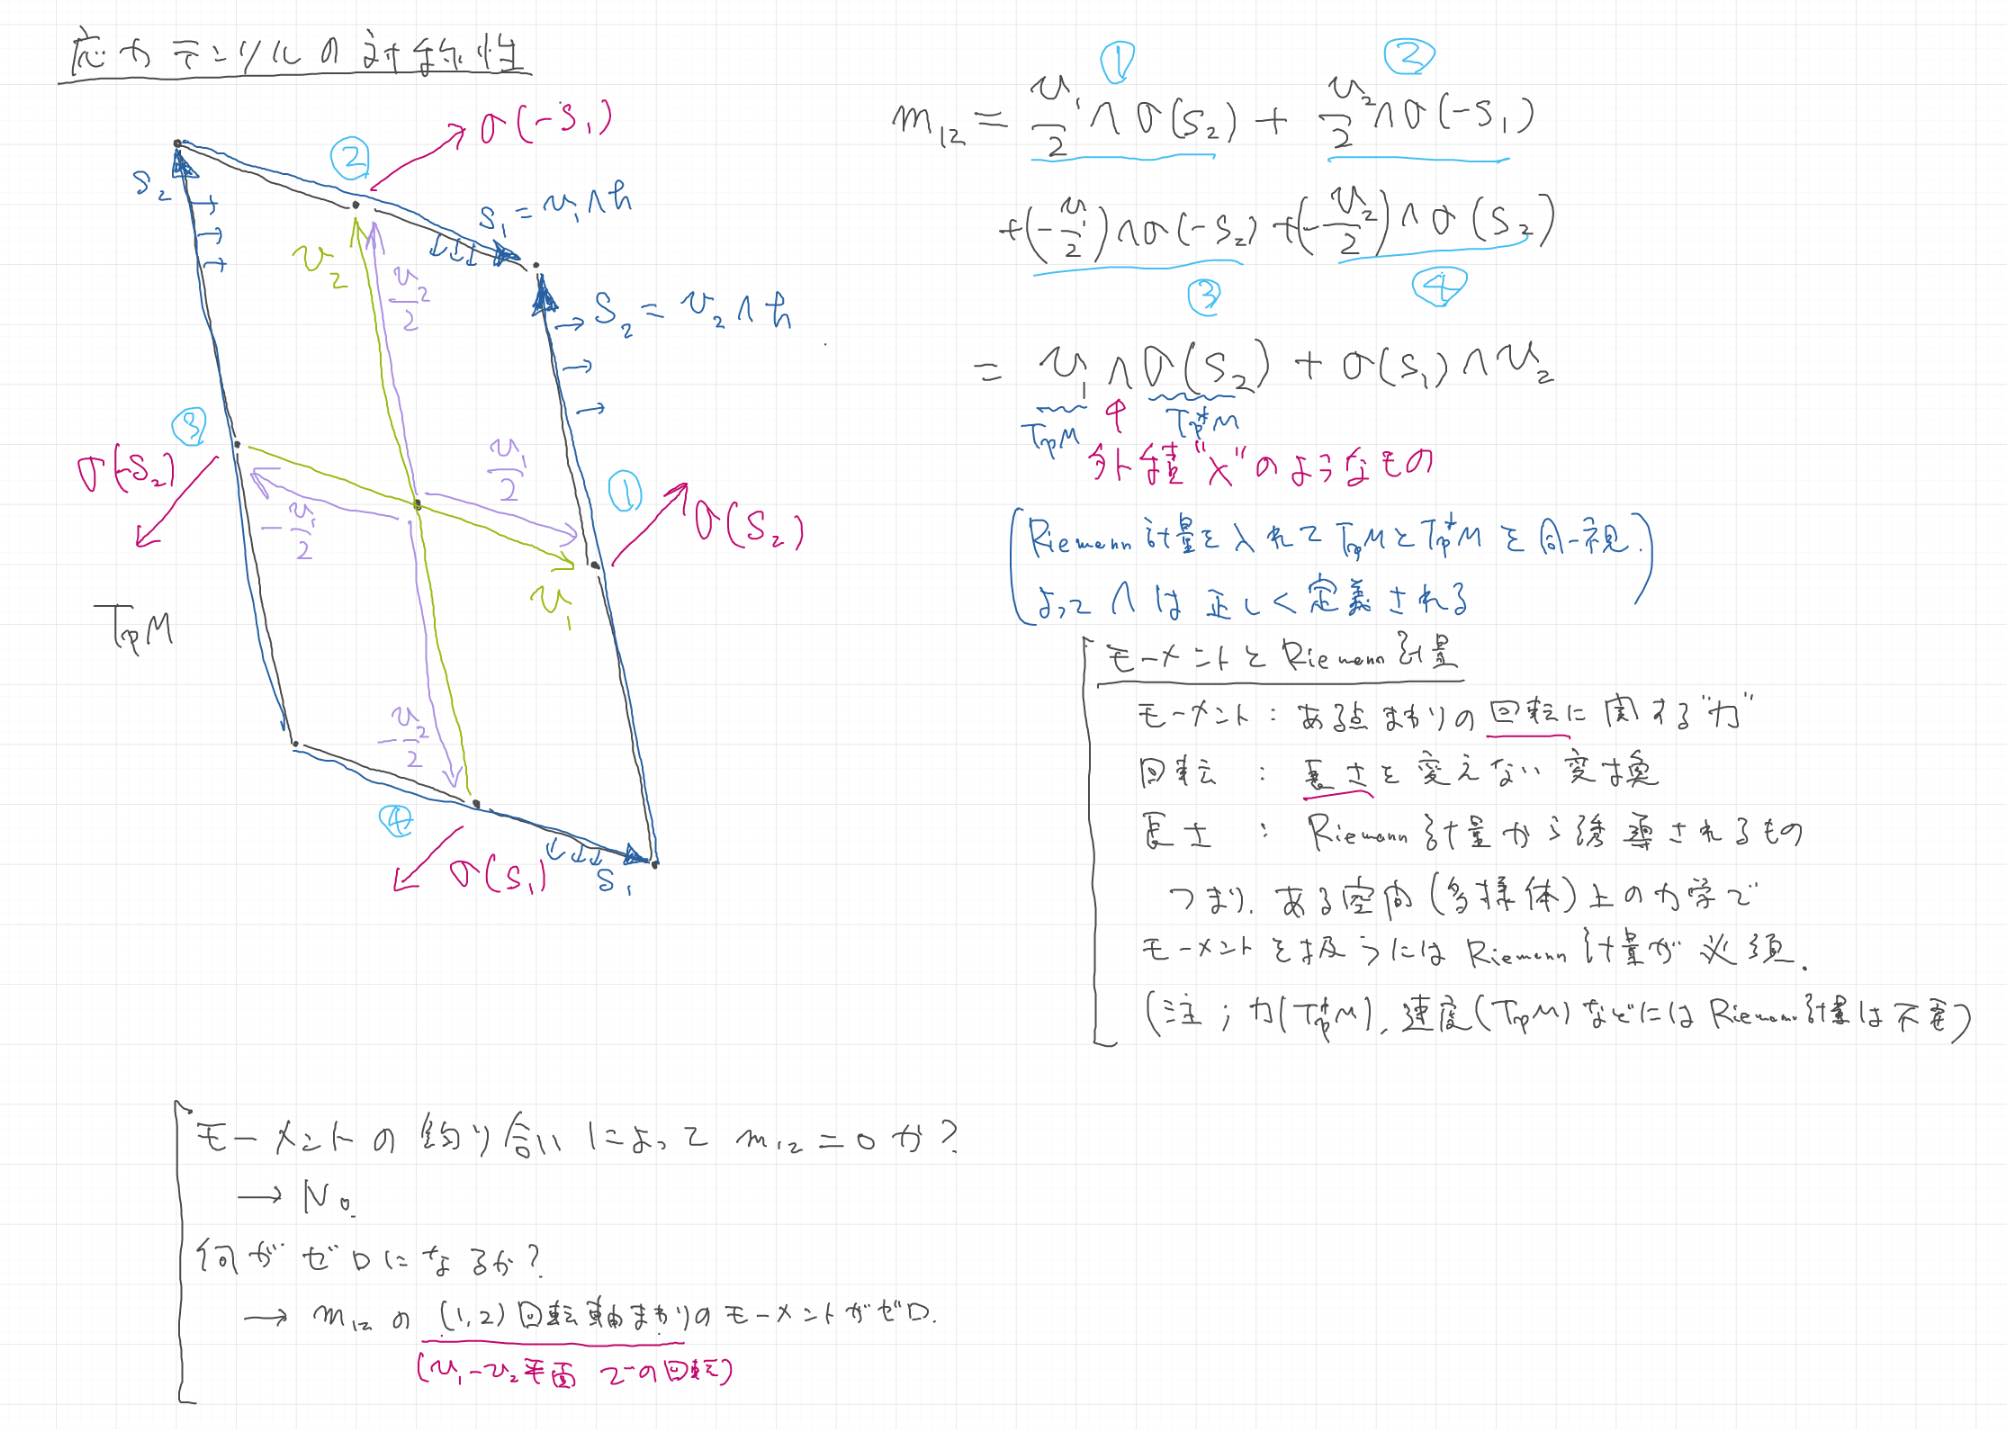 応力テンソルの対称性
σ(-S₁)
②
S₂
S₁ = v₁∧h
v₂
v₂/2
S₂ = v₂∧h
③
σ(-S₂)
v₁/2
①
σ(S₂)
-v₁/2
v₁
TpM
-v₂/2
④
σ(S₁)
S₁
① ②
m₁₂ = v₁/2 ∧ σ(S₂) + v₂/2 ∧ σ(-S₁)
+(-v₁/2)∧σ(-S₂) +(-v₂/2)∧σ(S₂)
③ ④
= v₁ ∧ σ(S₂) + σ(S₁)∧v₂
TpM Tp*M
外積"×"のようなもの
(Riemann計量を入れてTpMとTp*Mを同一視.
よって∧は正しく定義される)
モーメントとRiemann計量
モーメント:ある点まわりの回転に関する"力"
回転 : 長さを変えない変換
長さ : Riemann計量から誘導されるもの
つまり、ある空間(多様体)上の力学で
モーメントを扱うにはRiemann計量が必須.
(注;力(Tp*M)、速度(TpM)などにはRiemann計量は不要)
モーメントの釣り合いによって m₁₂=0か?
→ No.
何がゼロになるか?
→ m₁₂の(1,2)回転軸まわりのモーメントがゼロ.
(v₁-v₂平面での回転)